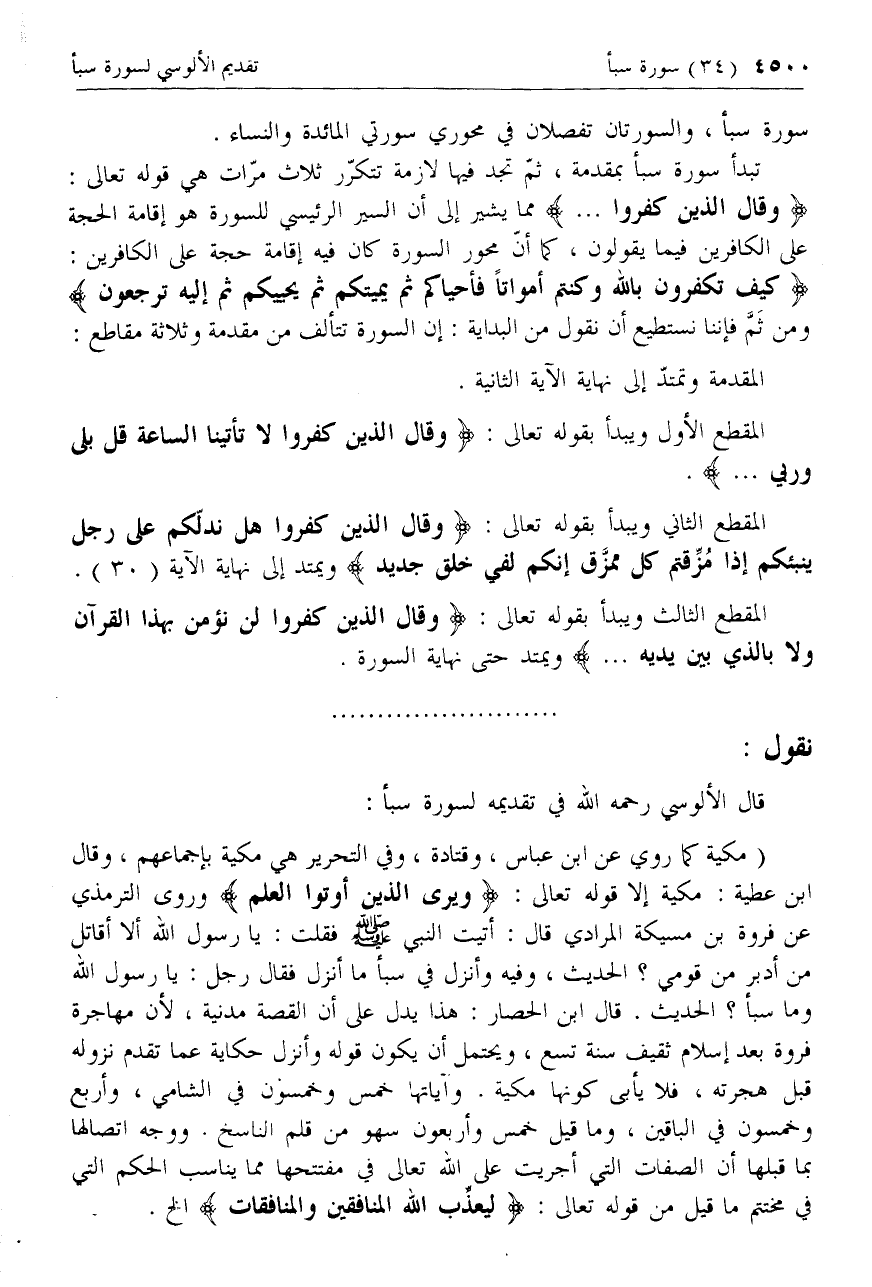 ٤٥٠٠ (٣٤) سورة سبأ تقديم الألوسي لسورة سبأ
سورة سبأ ، والسورتان تفصلان في محوري سورتي المائدة والنساء .
تبدأ سورة سبأ بمقدمة ، ثمّ تجد فيها لازمة تتكرّر ثلاث مرّات هي قوله تعالى :
﴿ وقال الذين كفروا ... ﴾ مما يشير إلى أن السير الرئيسي للسورة هو إقامة الحجة
على الكافرين فيما يقولون ، كما أنّ محور السورة كان فيه إقامة حجة على الكافرين :
﴿ كيف تكفرون بالله وكنتم أمواتاً فأحياكم ثم يميتكم ثم يحييكم ثم إليه ترجعون ﴾
ومن ثَمَّ فإننا نستطيع أن نقول من البداية : إن السورة تتألف من مقدمة وثلاثة مقاطع :
المقدمة وتمتدّ إلى نهاية الآية الثانية .
المقطع الأول ويبدأ بقوله تعالى : ﴿ وقال الذين كفروا لا تأتينا الساعة قل بلى
وربي ... ﴾ .
المقطع الثاني ويبدأ بقوله تعالى : ﴿ وقال الذين كفروا هل ندلّكم على رجل
ينبئكم إذا مُزِّقتم كل ممزَّق إنكم لفي خلق جديد ﴾ ويمتد إلى نهاية الآية ( ٣٠ ) .
المقطع الثالث ويبدأ بقوله تعالى : ﴿ وقال الذين كفروا لن نؤمن بهذا القرآن
ولا بالذي بين يديه ... ﴾ ويمتد حتى نهاية السورة .
........................
نقول :
قال الألوسي رحمه الله في تقديمه لسورة سبأ :
( مكية كما روي عن ابن عباس ، وقتادة ، وفي التحرير هي مكية بإجماعهم ، وقال
ابن عطية : مكية إلا قوله تعالى : ﴿ ويرى الذين أوتوا العلم ﴾ وروى الترمذي
عن فروة بن مسيكة المرادي قال : أتيت النبي ﷺ فقلت : يا رسول الله ألا أقاتل
من أدبر من قومي ؟ الحديث ، وفيه وأنزل في سبأ ما أنزل فقال رجل : يا رسول الله
وما سبأ ؟ الحديث . قال ابن الحصار : هذا يدل على أن القصة مدنية ، لأن مهاجرة
فروة بعد إسلام ثقيف سنة تسع ، ويحتمل أن يكون قوله وأنزل حكاية عما تقدم نزوله
قبل هجرته ، فلا يأبى كونها مكية . وآياتها خمس وخمسون في الشامي ، وأربع
وخمسون في الباقين ، وما قيل خمس وأربعون سهو من قلم الناسخ . ووجه اتصالها
بما قبلها أن الصفات التي أجريت على الله تعالى في مفتتحها مما يناسب الحكم التي
في مختتم ما قيل من قوله تعالى : ﴿ ليعذِّب الله المنافقين والمنافقات ﴾ الخ .